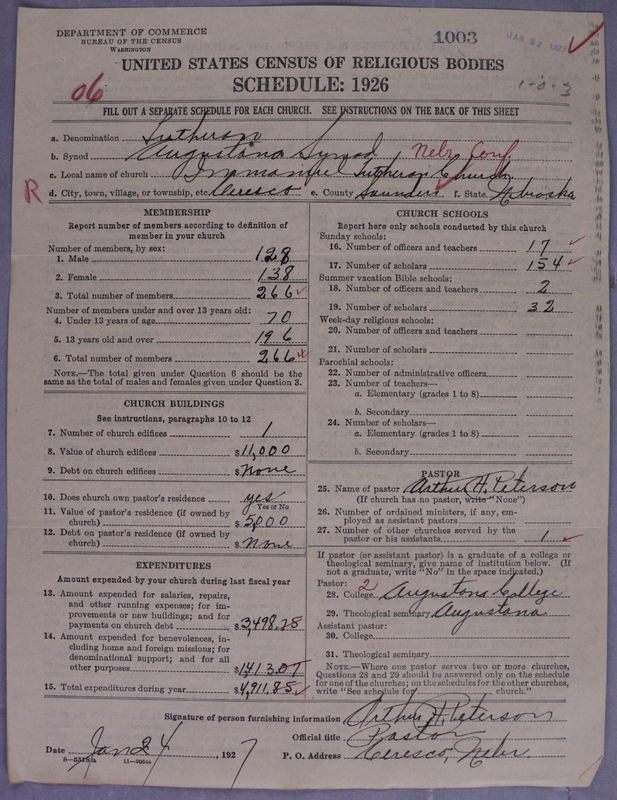 DEPARTMENT OF COMMERCE
BUREAU OF THE CENSUS
WASHINGTON
1003
JAN 27 1927
UNITED STATES CENSUS OF RELIGIOUS BODIES
SCHEDULE: 1926
1-0-3
06
FILL OUT A SEPARATE SCHEDULE FOR EACH CHURCH. SEE INSTRUCTIONS ON THE BACK OF THIS SHEET
a. Denomination Lutheran
b. Synod Augustana Synod Nebr. Conf.
c. Local name of church Immanuel Lutheran Church
R d. City, town, village, or township, etc. Ceresco e. County Saunders f. State Nebraska
MEMBERSHIP
Report number of members according to definition of
member in your church
Number of members, by sex:
1. Male 128
2. Female 138
3. Total number of members 266
Number of members under and over 13 years old:
4. Under 13 years of age 70
5. 13 years old and over 196
6. Total number of members 266
NOTE.—The total given under Question 6 should be
same as the total of males and females given under Question 3.
CHURCH BUILDINGS
See instructions, paragraphs 10 to 12
7. Number of church edifices 1
8. Value of church edifices $11,000
9. Debt on church edifices $None
10. Does church own pastor's residence yes
Yes or No
11. Value of pastor's residence (if owned by
church) $5000
12. Debt on pastor's residence (if owned by
church) $None
EXPENDITURES
Amount expended by your church during last fiscal year
13. Amount expended for salaries, repairs,
and other running expenses; for im-
provements or new buildings; and for
payments on church debt $3,498.78
14. Amount expended for benevolences, in-
cluding home and foreign missions; for
denominational support; and for all
other purposes $1413.07
15. Total expenditures during year $4,911.85
CHURCH SCHOOLS
Report here only schools conducted by this church
Sunday schools:
16. Number of officers and teachers 17
17. Number of scholars 154
Summer vacation Bible schools:
18. Number of officers and teachers 2
19. Number of scholars 32
Week-day religious schools:
20. Number of officers and teachers
21. Number of scholars
Parochial schools:
22. Number of administrative officers
23. Number of teachers—
a. Elementary (grades 1 to 8)
b. Secondary
24. Number of scholars—
a. Elementary (grades 1 to 8)
b. Secondary
PASTOR
25. Name of pastor Arthur H. Peterson
(If church has no pastor, write "None")
26. Number of ordained ministers, if any, em-
ployed as assistant pastors
27. Number of other churches served by the
pastor or his assistants 1
If pastor (or assistant pastor) is a graduate of a college or
theological seminary, give name of institution below. (If
not a graduate, write "No" in the space indicated.)
Pastor: 2
28. College Augustana College
29. Theological seminary Augustana
Assistant pastor:
30. College
31. Theological seminary
NOTE.—Where one pastor serves two or more churches,
Questions 28 and 29 should be answered only on the schedule
for one of the churches; on the schedules for the other churches,
write "See schedule for church."
Signature of person furnishing information Arthur H. Peterson
Official title Pastor
Date Jan 24, 1927 P. O. Address Ceresco, Nebr.